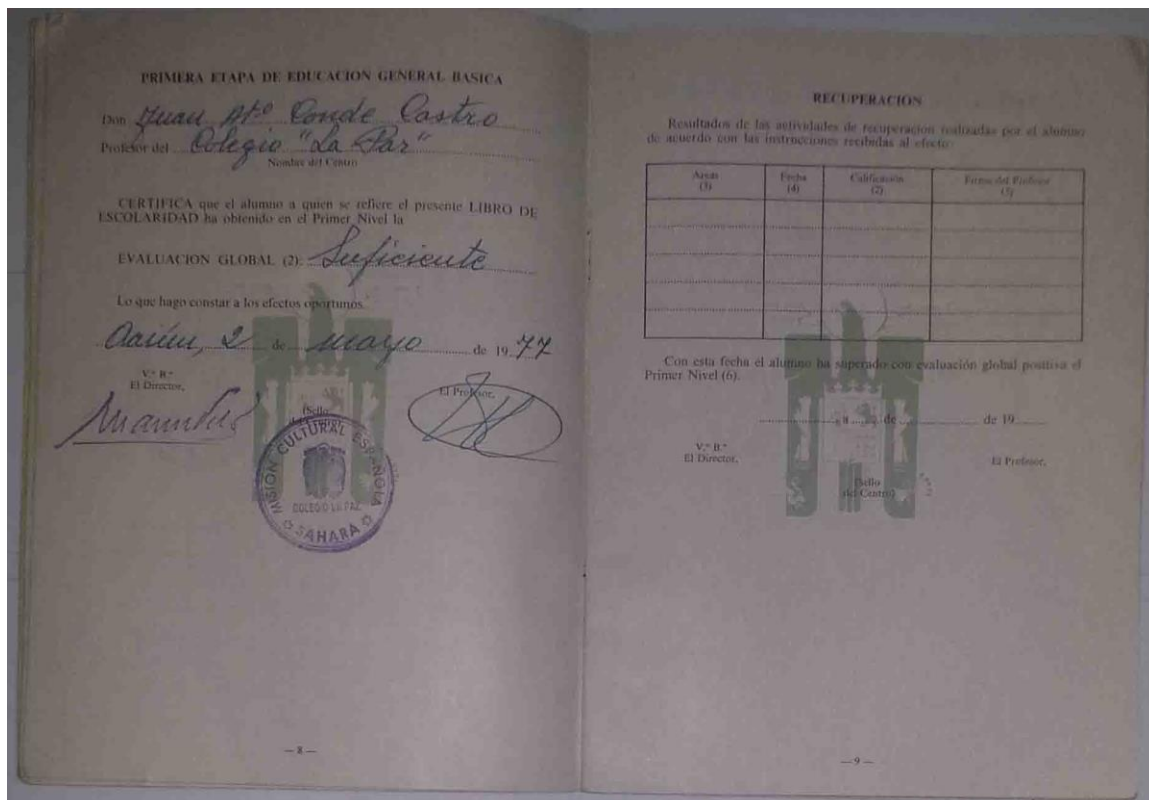 PRIMERA ETAPA DE EDUCACION GENERAL BASICA
Don Juan Atº Conde Castro
Profesor del Colegio "La Paz"
Nombre del Centro
CERTIFICA que el alumno a quien se refiere el presente LIBRO DE
ESCOLARIDAD ha obtenido en el Primer Nivel la
EVALUACION GLOBAL (2): Suficiente
Lo que hago constar a los efectos oportunos.
Aaiún, 2 de mayo de 1977
V.º B.º
El Director,
El Profesor,
(Sello
del Centro)
MISIÓN CULTURAL ESPAÑOLA
COLEGIO LA PAZ
SAHARA
— 8 —
RECUPERACION
Resultados de las actividades de recuperación realizadas por el alumno
de acuerdo con las instrucciones recibidas al efecto:
Areas
(3)
Fecha
(4)
Calificación
(2)
Firma del Profesor
(5)
Con esta fecha el alumno ha superado con evaluación global positiva el
Primer Nivel (6).
a de de 19
V.º B.º
El Director,
El Profesor,
(Sello
del Centro)
— 9 —